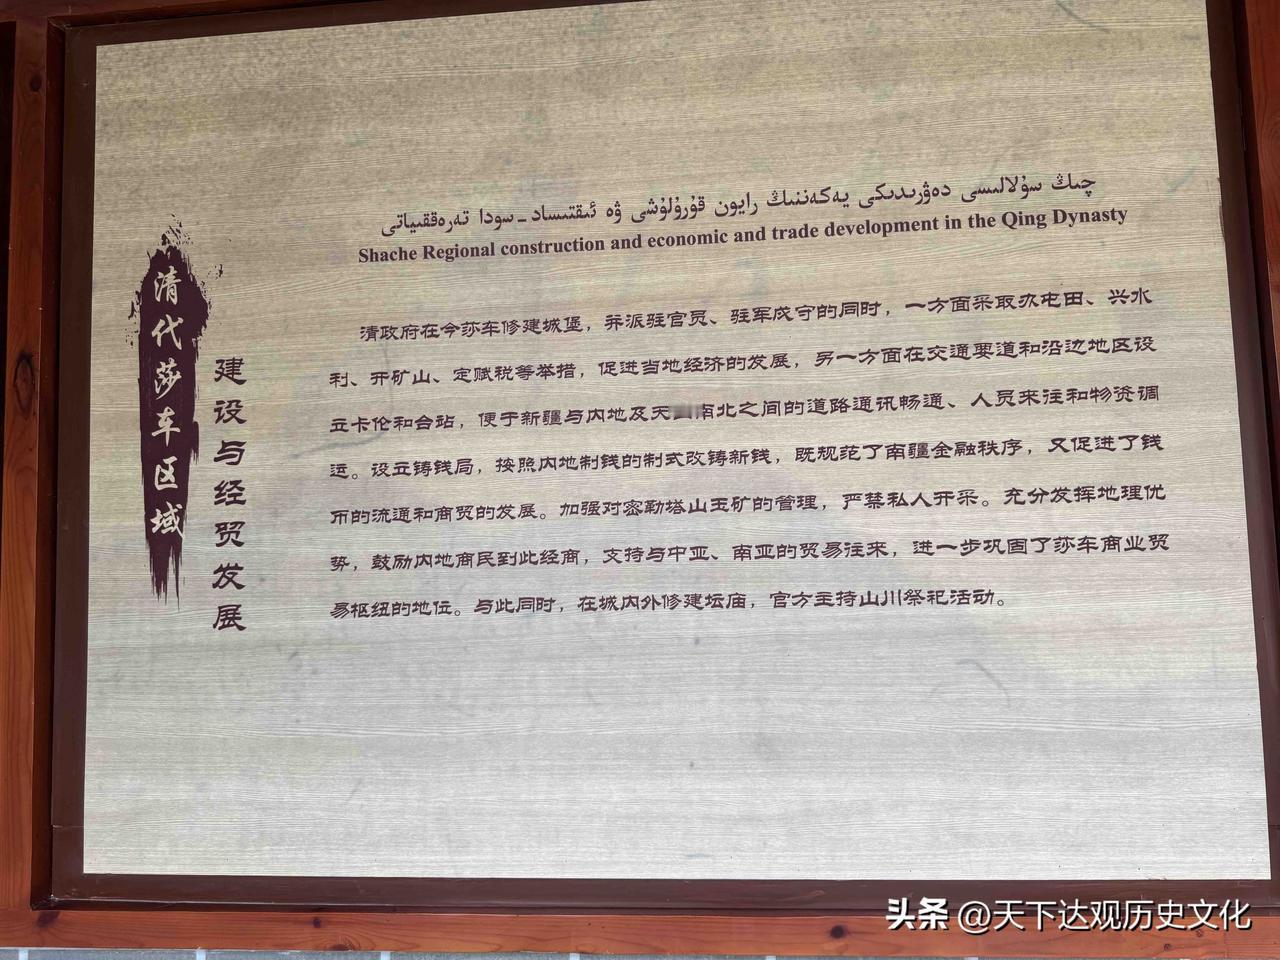 清代莎车区域
建设与经贸发展
چىڭ سۇلالىسى دەۋرىدىكى يەكەننىڭ رايون قۇرۇلۇشى ۋە ئىقتىساد - سودا تەرەققىياتى
Shache Regional construction and economic and trade development in the Qing Dynasty
清政府在今莎车修建城堡，并派驻官员、驻军戍守的同时，一方面采取办屯田、兴水
利、开矿山、定赋税等举措，促进当地经济的发展，另一方面在交通要道和沿边地区设
立卡伦和台站，便于新疆与内地及天南北之间的道路通讯畅通、人员来往和物资调
运。设立铸钱局，按照内地制钱的制式改铸新钱，既规范了南疆金融秩序，又促进了钱
币的流通和商贸的发展。加强对密勒塔山玉矿的管理，严禁私人开采。充分发挥地理优
势，鼓励内地商民到此经商，支持与中亚、南亚的贸易往来，进一步巩固了莎车商业贸
易枢纽的地位。与此同时，在城内外修建坛庙，官方主持山川祭祀活动。
头条 @天下达观历史文化